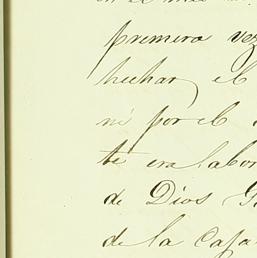 premera vez
hechar, el
ni por el
te era labor
de Dios G
de la Casa